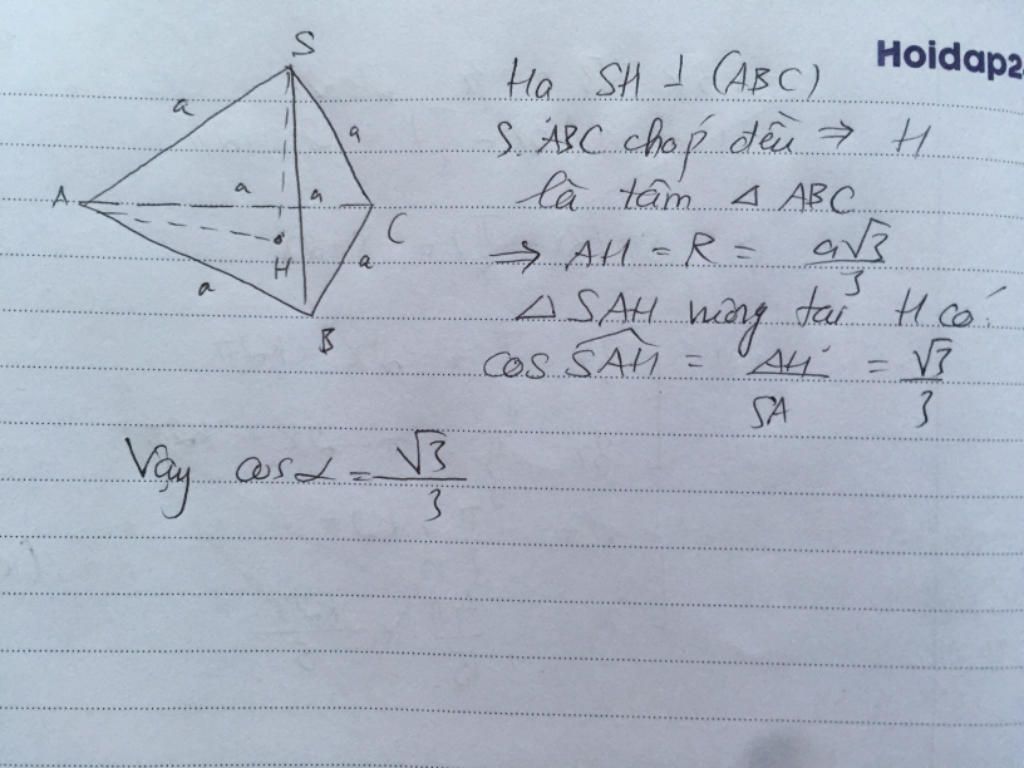 Hoidap2
S
a
a
A
a
a
C
H
a
a
B
Hạ SH ⊥ (ABC)
S.ABC chóp đều ⇒ H
là tâm Δ ABC
⇒ AH = R = a√3/3
Δ SAH vuông tại H có:
cos SAH = AH/SA = √3/3
Vậy cos α = √3/3